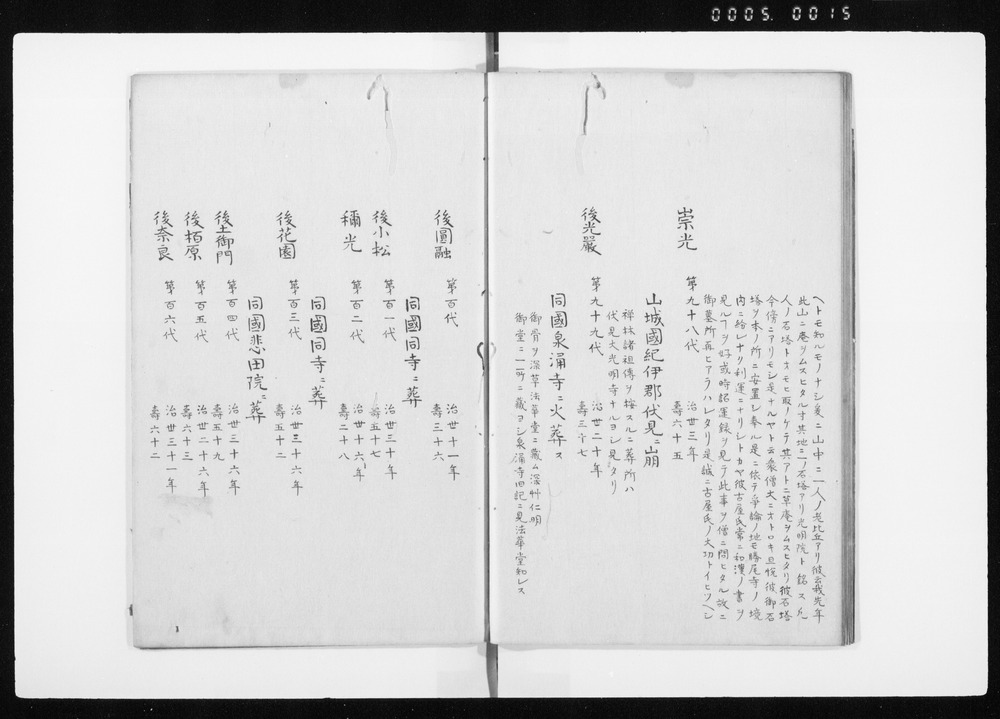 0005.0015
ヘトモ知ルモノナシ後ニ山中ニ一人ノ老比丘アリ彼云我先年
此山ニ庵ヲムスヒタル寸其地ニ二ノ石塔アリ光明院ト銘ス凡
人ノ石塔トオモヒ取ノケテ其アトニ草庵ヲムスヒタリ彼石塔
今傍ニアリモシ是ナルヤト云衆僧大ニオトロキ且悦彼御石
塔ヲ本ノ所ニ安置シ奉ル是ニ依テ爭論ノ地モ勝尾寺ノ境
内ニ紛レナク利運ニナリシトカヤ彼古屋氏常ニ和漢ノ書ヲ
見ルヿヲ好或時諸運録ヲ見テ此事ヲ僧ニ問ヒタル故ニ
御墓所再ヒアラハレタリ是誠ニ古屋氏ノ大功トイヒツヘシ
崇光 第九十八代 治世三年
壽六十五
山城國紀伊郡伏見ニ崩
禅林諸祖傳ヲ按スルニ葬所ハ
伏見大光明寺ナルヨシ見タリ
後光嚴 第九十九代 治世二十年
壽三十七
同國泉涌寺ニ火葬ス
御骨ヲ深草法華堂ニ蔵ム深艸仁明
御堂ニ二所ニ蔵ヨシ泉涌寺旧記ニ見法華堂知レス
後圓融 第百代 治世十一年
壽三十六
同國同寺ニ葬
後小松 第百一代 治世三十年
壽五十七
稱光 第百二代 治世十六年
壽二十八
同國同寺ニ葬
後花園 第百三代 治世三十六年
壽五十二
同國悲田院ニ葬
後土御門 第百四代 治世三十六年
壽五十九
後栢原 第百五代 治世二十六年
壽六十三
後奈良 第百六代 治世三十一年
壽六十二